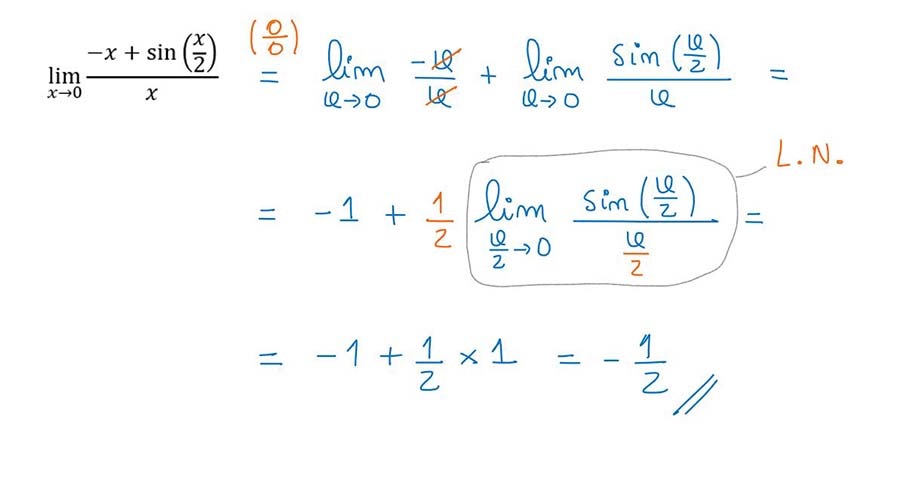 lim x→0 (−x + sin(x/2)) / x (0/0) = lim x→0 −x/x + lim x→0 sin(x/2) / x =
L.N.
= −1 + 1/2 lim x/2→0 sin(x/2) / (x/2) =
= −1 + 1/2 × 1 = − 1/2 //